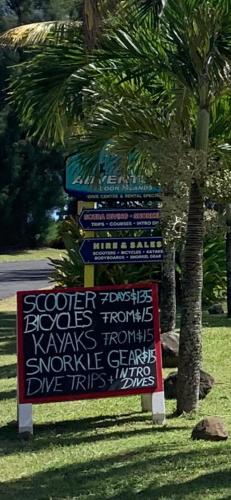 ADVENTURE
COOK ISLANDS
DIVE CENTRE & RENTAL SPECIALISTS
SCUBA DIVING SNORKEL
TRIPS - COURSES - INTRO DIVES
SCOOTERS - BICYCLES - KAYAKS
HIRE & SALES
BODYBOARDS - SNORKEL GEAR
SCOOTER 7DAYS$135
BICYCLES FROM$15
KAYAKS FROM$15
SNORKLE GEAR$15
DIVE TRIPS + INTRO DIVES